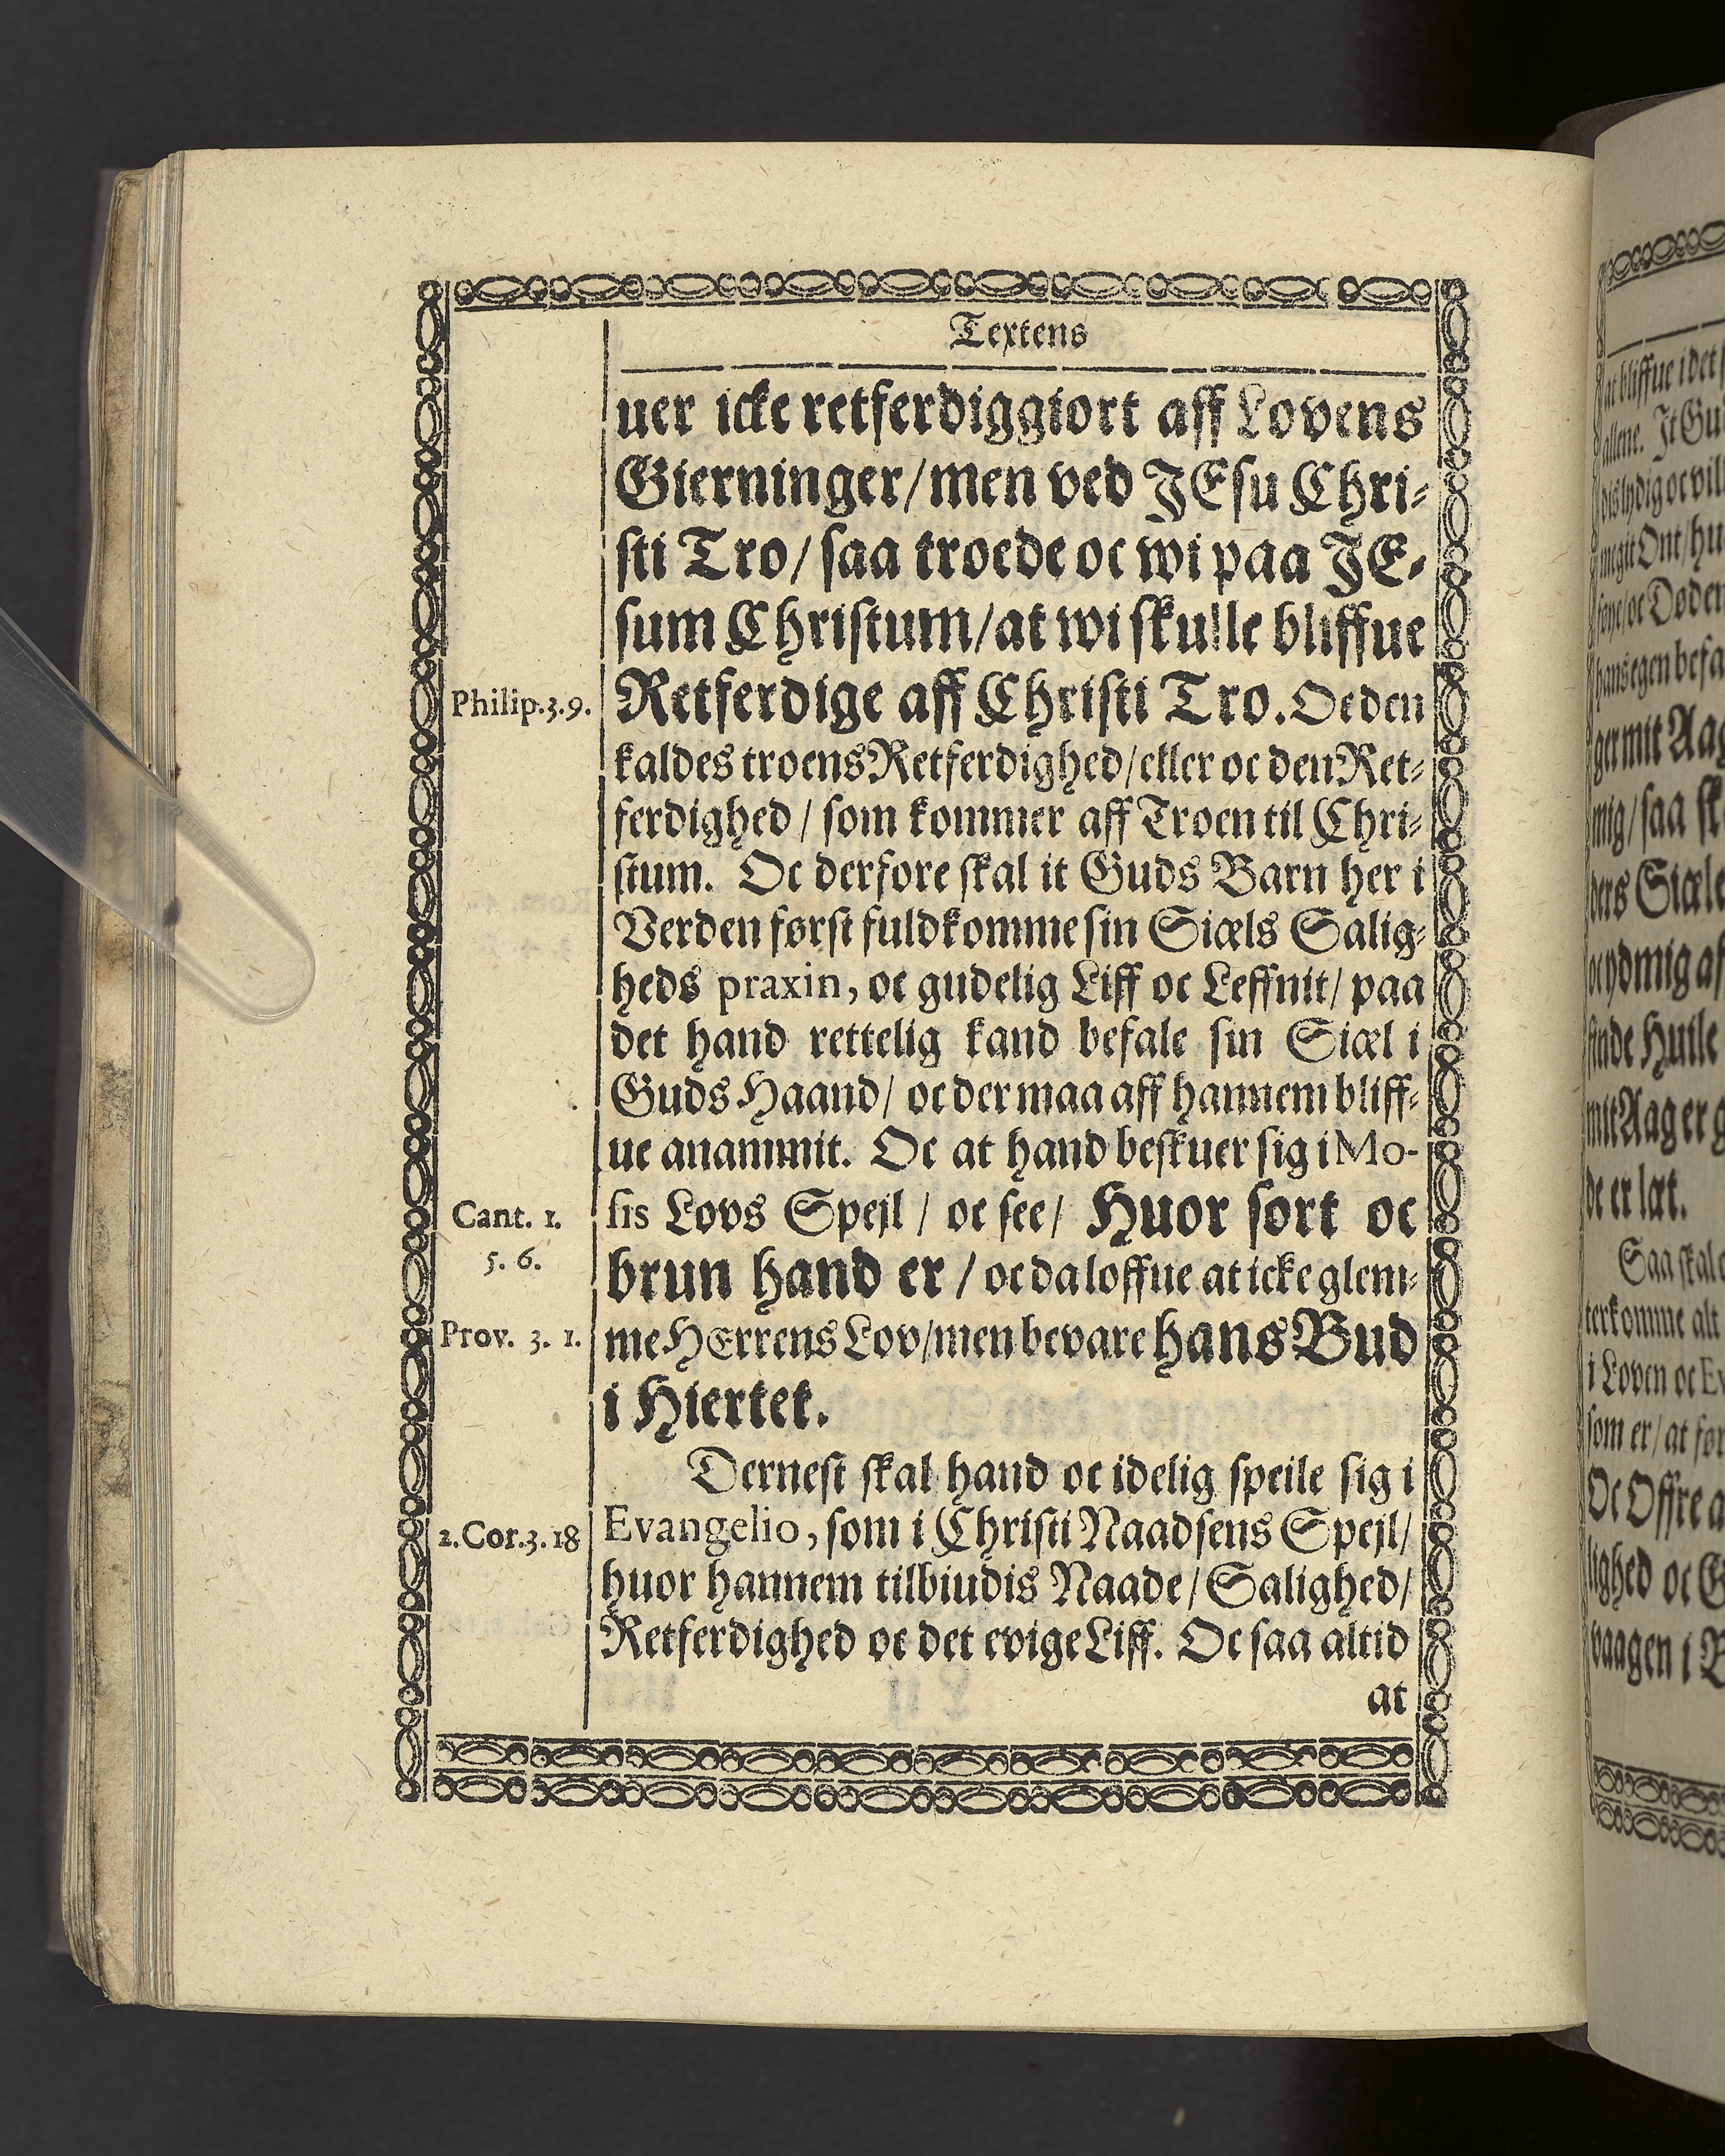 Textens
uer icke retferdiggiort aff Lovens
Gierninger/men ved JEsu Chri-
sti Tro/ saa troede oc wi paa JE-
sum Christum/at wi skulle bliffue
Philip.3.9. Retferdige aff Christi Tro. Oc den
kaldes troens Retferdighed/eller oc den Ret-
ferdighed/ som kommer aff Troen til Chri-
stum. Oc derfore skal it Guds Barn her i
Verden først fuldkomme sin Siæls Salig-
heds praxin, oc gudelig Liff oc Leffnit/ paa
det hand rettelig kand befale sin Siæl i
Guds Haand/ oc der maa aff hannem bliff-
ue anammit. Oc at hand beskuer sig i Mo-
Cant. 1. sis Lovs Spejl/ oc see/ Huor sort oc
5. 6. brun hand er/ oc da loffue at icke glem-
Prov. 3. 1. me HErrens Lov/men bevare hans Bud
i Hiertet.
Dernest skal hand oc idelig speile sig i
2.Cor.3.18 Evangelio, som i Christi Naadsens Spejl/
huor hannem tilbiudis Naade/ Salighed/
Retferdighed oc det evige Liff. Oc saa altid
at
at bliffue i det
allene. It
mig/saa
ders Siæle
finde Huile
mit Aag er
de er læt.
Saa skal
i Loven oc
som er/at
Oc Offre
lighed oc
vaagen i